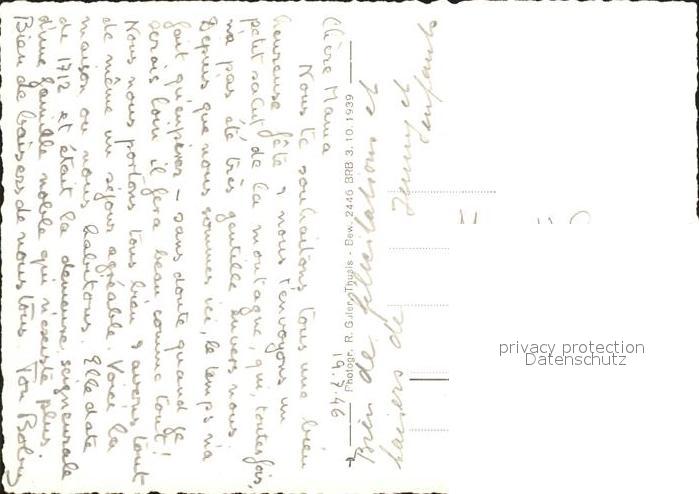 19.7.46
Chère Mama
Nous te souhaitons tous une bien
heureuse fête & nous t'envoyons un
petit salut de la montagne, qui, toutefois,
n'a pas été très gentille envers nous.
Depuis que nous sommes ici, le temps n'a
fait qu'empirer – sans doute quand je
serais loin il fera beau comme tout!
Nous nous portons tous bien & avons tout
de même un séjour agréable. Voici la
maison où nous habitons. Elle date
de 1712 et était la demeure seigneuriale
d'une famille noble qui n'existe plus.
Bien de baisers de nous tous. Ton
Photogr. R. Guler, Thusis - Bew. 2446 BRB 3.10.1939
Bien de félicitations et
baisers de Jenny et
enfants
privacy protection
Datenschutz